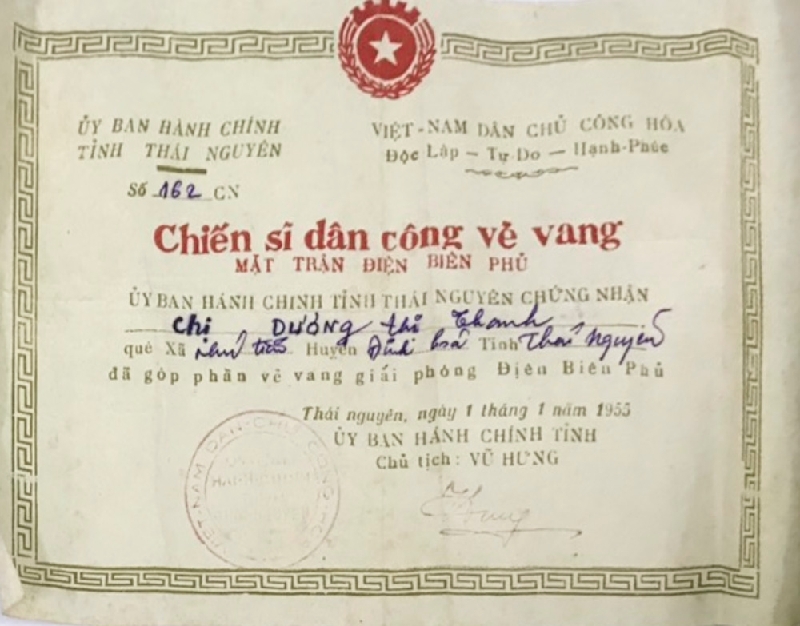 ỦY BAN HÀNH CHÍNH
TỈNH THÁI NGUYÊN
Số 162 CN
VIỆT-NAM DÂN CHỦ CỘNG HÒA
Độc Lập - Tự Do - Hạnh-Phúc
Chiến sĩ dân công vẻ vang
MẶT TRẬN ĐIỆN BIÊN PHỦ
ỦY BAN HÀNH CHINH TỈNH THÁI NGUYÊN CHỨNG NHẬN
Chị Dương thị Thanh
quê Xã Huyện Định hoá Tỉnh Thái Nguyên
đã góp phần vẻ vang giải phóng Điện Biên Phủ
Thái nguyên, ngày 1 tháng 1 năm 1955
ỦY BAN HÀNH CHÍNH TỈNH
Chủ tịch: VŨ HƯNG
VIỆT-NAM DÂN-CHỦ CỘNG HÒA